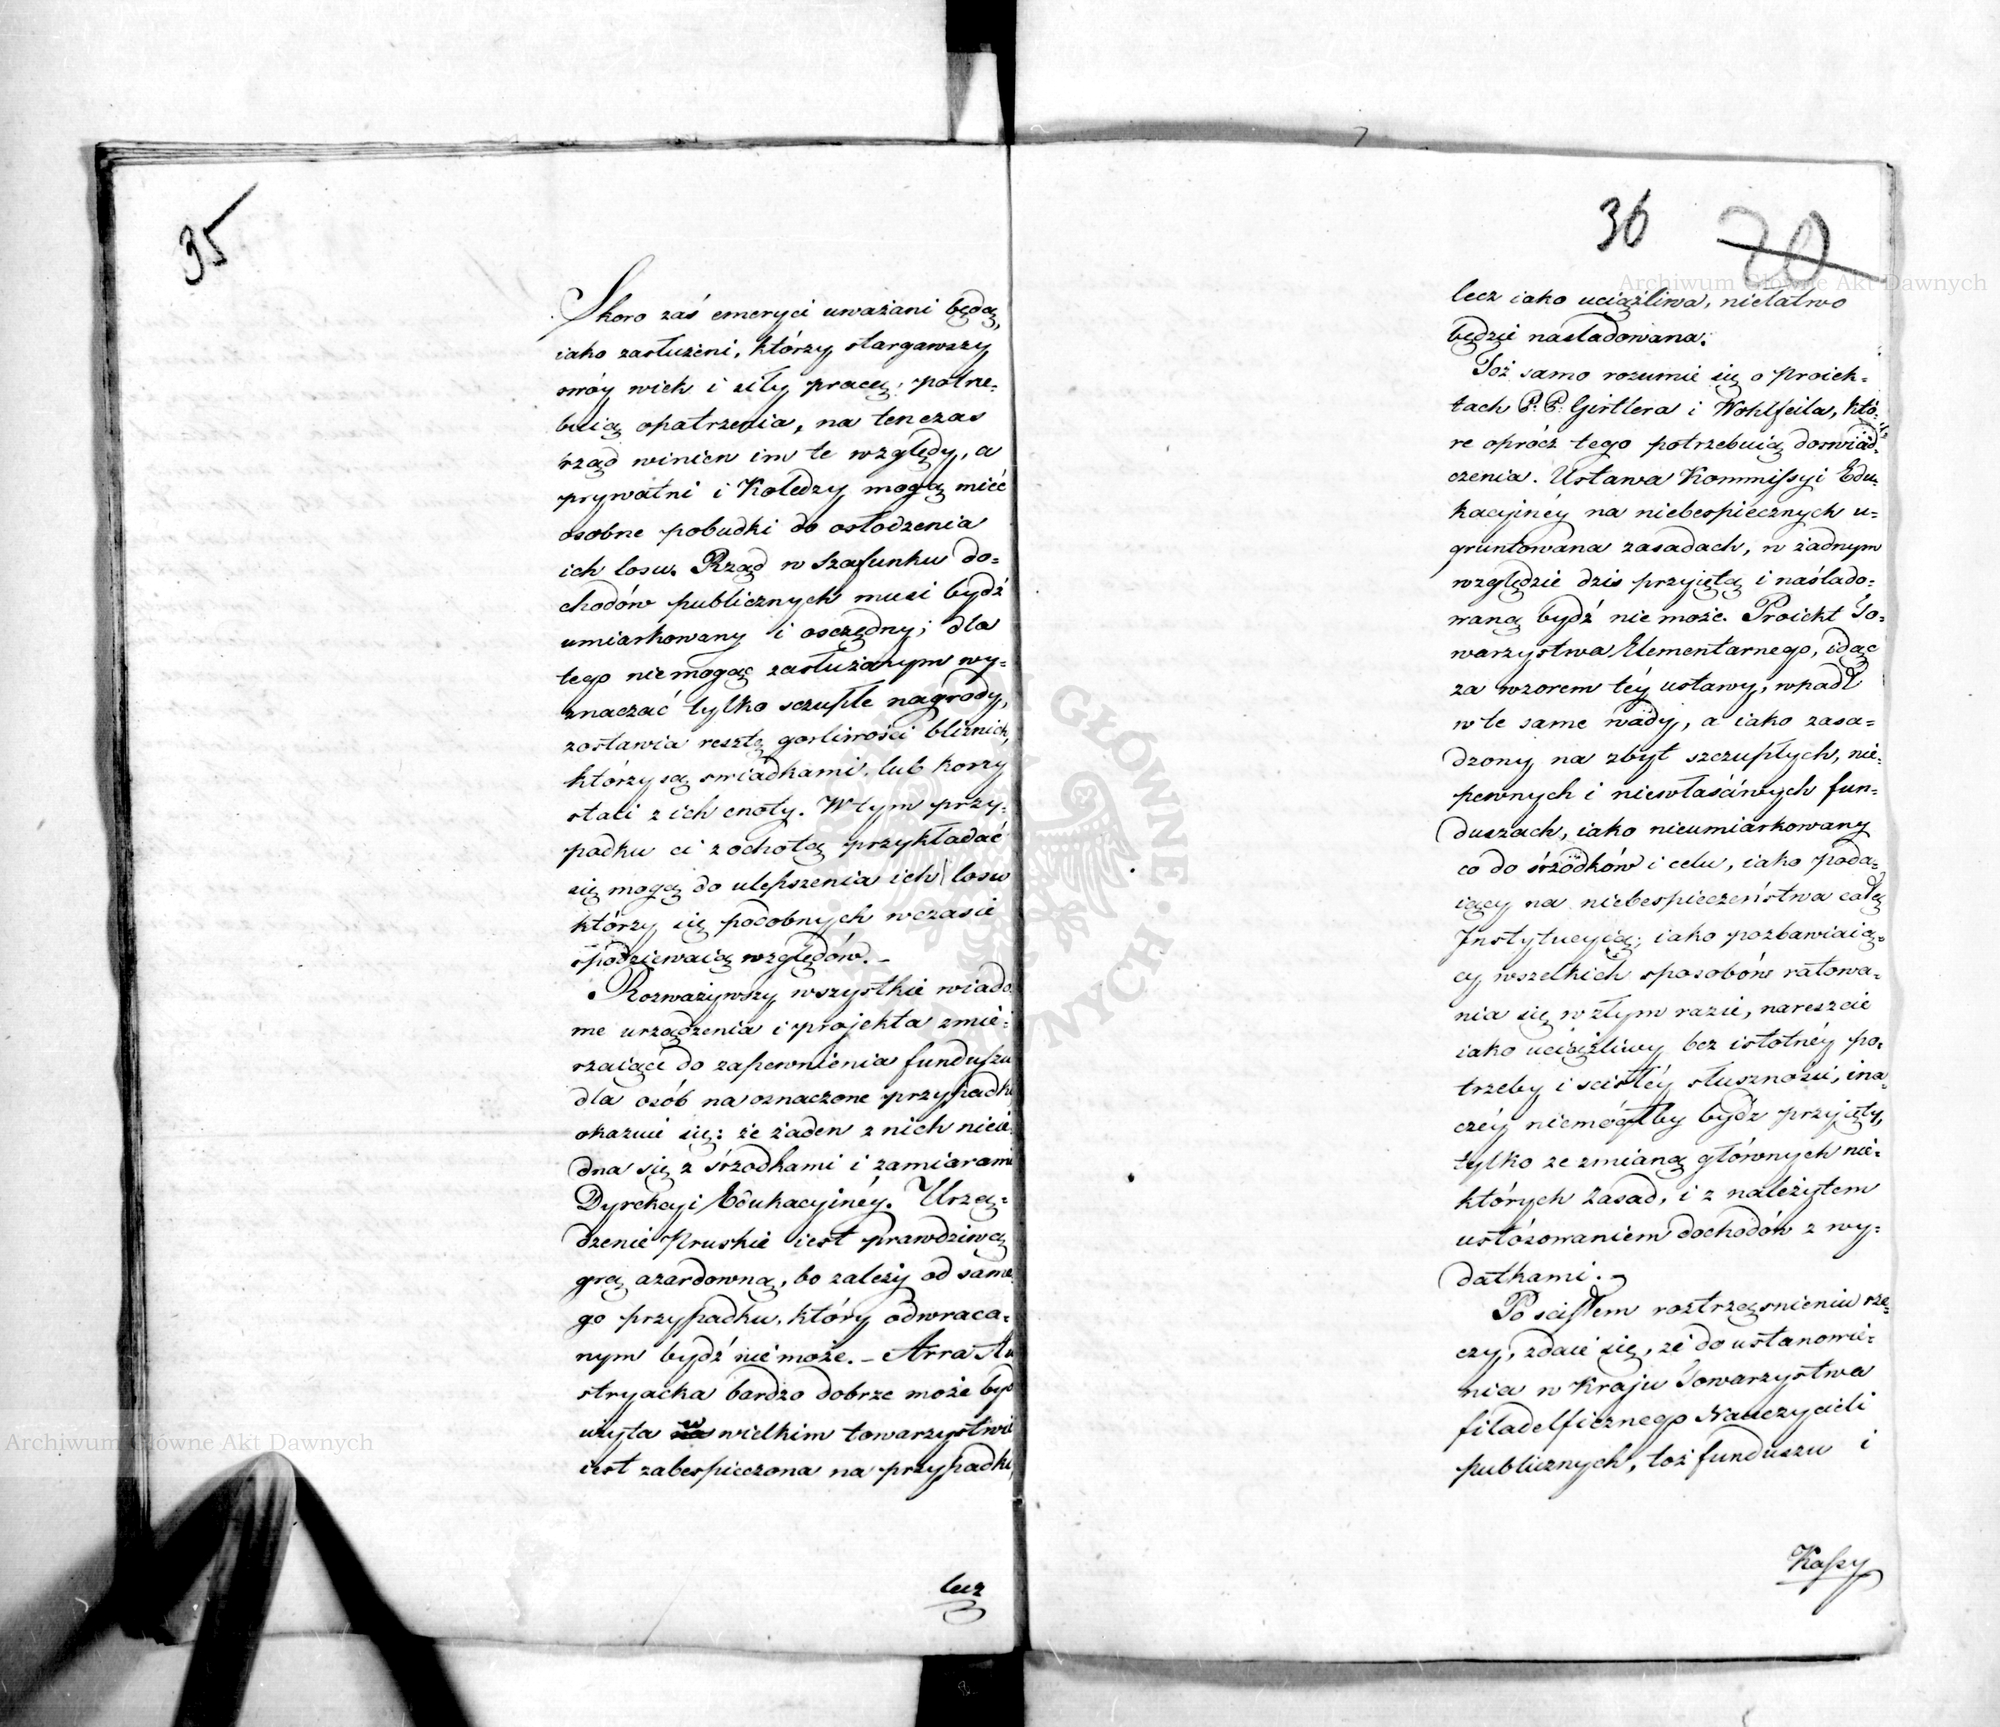 35
Skoro zaś emeryci uważani będą,
iako zasłużeni, którzy stargawszy
swóy wiek i siły pracą, potrze-
buią opatrzenia, na tenczas
rząd winien im te względy, a
prywatni i Koledzy mogą mieć
osobne pobudki do osłodzenia
ich losu. Rząd w szafunku do-
chodów publicznych musi bydź
umiarkowany i osczędny; dla
tego niemogąc zasłużonym wy-
znaczać tylko sczupłe nagrody,
zostawia resztę gorliwości bliźnich,
którzy są świadkami, lub korzy
stali z ich cnoty. W tym przy-
padku ci z ochotą przykładać
się mogą do ulepszenia ich losu
którzy się podobnych w czasie
spodziewaią względów. –
Rozważywszy wszystkie wiado
me urządzenia i projekta zmie-
rzaiące do zapewnienia funduszu
dla osób na oznaczone przypadki
okazuie się: że żaden z nich nieie-
dna się z śrzodkami i zamiarami
Dyrekcyi Edukacyinéy. Urzą-
dzenie Pruskie iest prawdziwą
grą azardowną, bo zależy od same
go przypadku, który odwraca-
nym bydź nie może. – Arra Au
stryacka bardzo dobrze może byd
użyta w wielkim towarzystwie
iest zabespieczona na przypadki,
lecz
36 70
lecz iako uciążliwa, niełatwo
będzie naśladowana.
Toż samo rozumie się o proiek-
tach P. P. Girtlera i Wohlfeila, któ-
re oprócz tego potrzebuią doświad-
czenia. Ustawa Kommissyi Edu-
kacyinéy na niebespiecznych u-
gruntowana zasadach, w żadnym
względzie dziś przyiętą i naślado-
waną bydź nie może. Proiekt To-
warzystwa Elementarnego, idąc
za wzorem téy ustawy, wpadł
w te same wady, a iako zasa-
dzony na zbyt szczupłych, nie-
pewnych i niewłaściwych fun-
duszach, iako nieumiarkowany
co do śrzodków i celu, iako poda-
iący na niebespieczeństwa całą
Instytucyią, iako pozbawiaią-
cy wszelkich sposobów ratowa-
nia się w złym razie, nareszcie
iako uciążliwy bez istotnéy po-
trzeby i ścisłéy słuszności, ina-
czéy niemógłby bydź przyjęty,
tylko ze zmianą głównych nie-
których zasad, i z należytem
ustósowaniem dochodów z wy-
datkami. –
Po ścisłem roztrząśnieniu rze-
czy, zdaie się, że do ustanowie-
nia w Kraju Towarzystwa
filadelficznego Nauczycieli
publicznych, toż funduszu i
Kassy
Archiwum Główne Akt Dawnych
Archiwum Główne Akt Dawnych